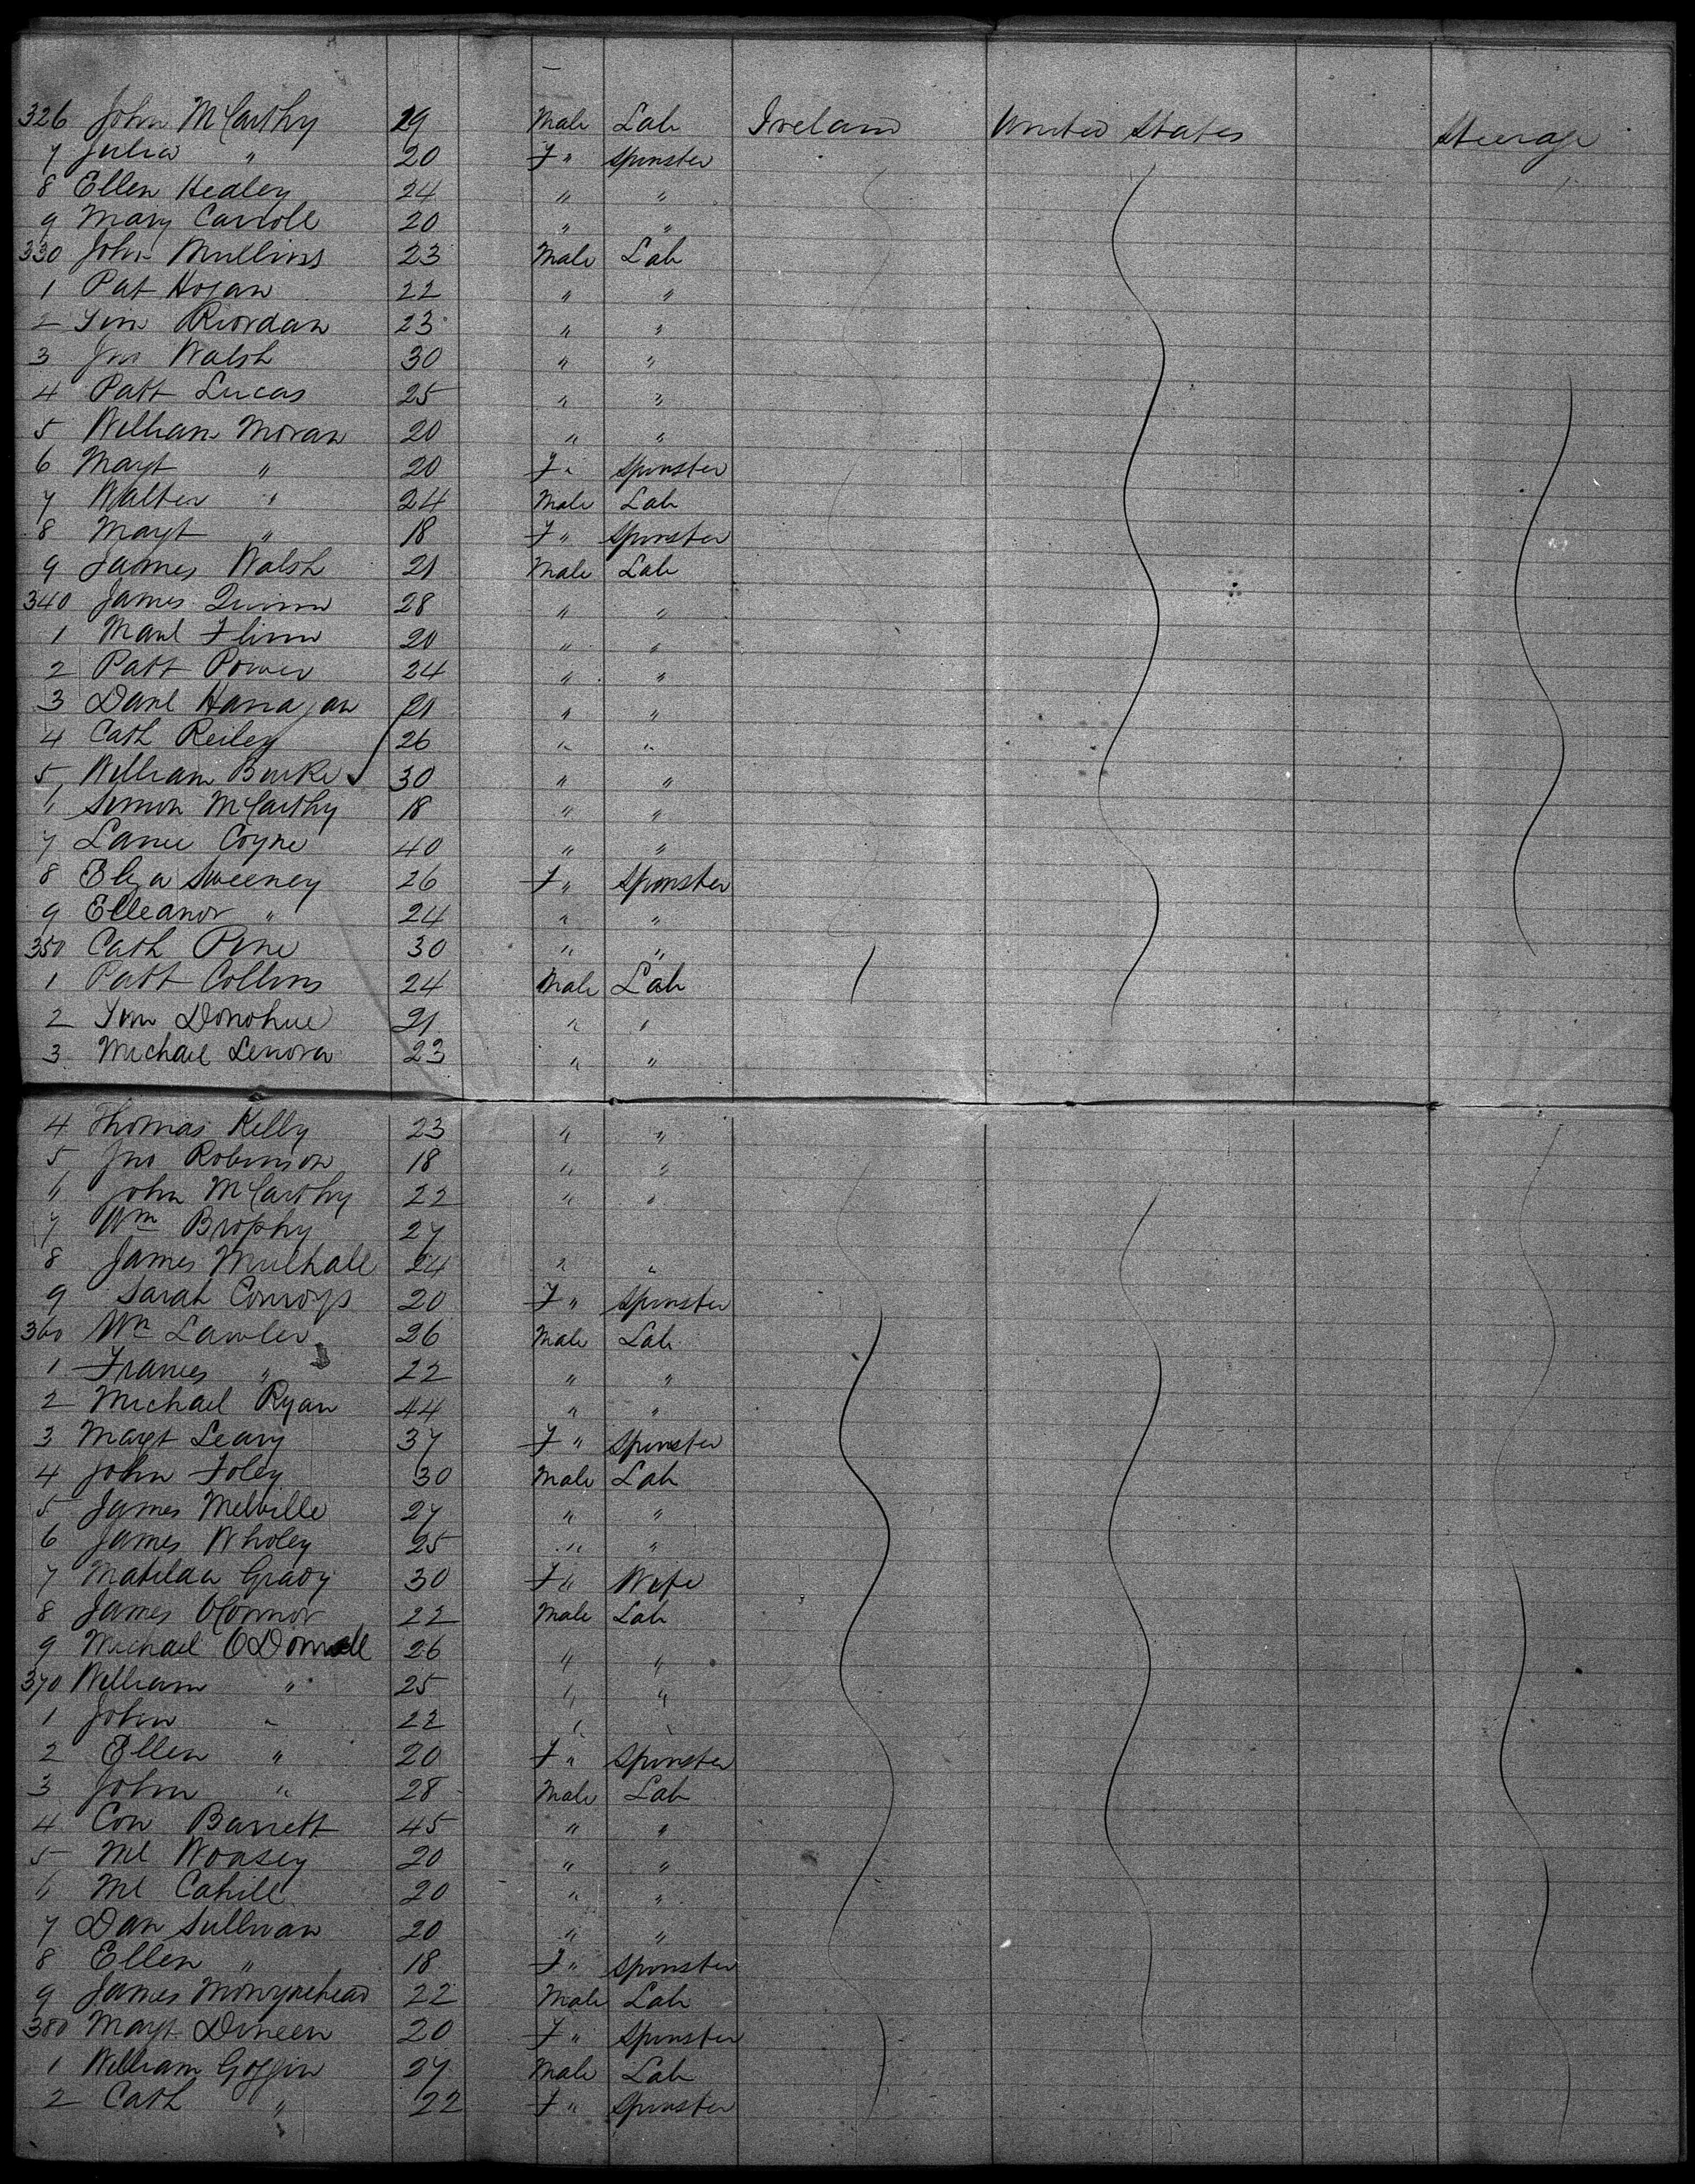 326 John McCarthy 29 Male Lab Ireland United States Steerage
7 Julia " 20 F " Spinster
8 Ellen Healey 24 " "
9 Mary Carroll 20 " "
330 John Mullins 23 Male Lab
1 Pat Hogan 22 " "
2 Tim Riordan 23 " "
3 Jno Walsh 30 " "
4 Patt Lucas 25 " "
5 William Moran 20 " "
6 Magt " 20 F " Spinster
7 Walter " 24 Male Lab
8 Magt " 18 F " Spinster
9 James Walsh 21 Male Lab
340 James Quinn 28 " "
1 Flinn 20 " "
2 Patt Power 24 " "
3 Danl Hanagan 21 " "
4 Cath Reiley 26 " "
5 William Burke 30 " "
" Simon McCarthy 18 " "
7 Coyne 40 " "
8 Eliza Sweeney 26 F " Spinster
9 Elleanor " 24 " "
350 Cath Pine 30 " "
1 Patt Collins 24 Male Lab
2 Tim Donohue 21 " "
3 Michael Lenora 23 " "
4 Thomas Kelly 23 " "
5 Jno Robinson 18 " "
" John McCarthy 22 " "
7 Wm Brophy 27
8 James Mulhall 24 " "
9 Sarah Conroys 20 F " Spinster
360 Wm Lawler 26 Male Lab
1 Frances " 22 " "
2 Michael Ryan 44 " "
3 Magt Leary 37 F " Spinster
4 John Foley 30 Male Lab
5 James Melville 27 " "
6 James Wholey 25 " "
7 Matilda Grady 30 F " Wife
8 James OConnor 22 Male Lab
9 Michael ODonnell 26 " "
370 William " 25 " "
1 John " 22 " "
2 Ellen " 20 F " Spinster
3 John " 28 Male Lab
4 Con Barrett 45 " "
5 Ml 20 " "
6 Ml Cahill 20 " "
7 Dan Sullivan 20 " "
8 Ellen " 18 F " Spinster
9 James 22 Male Lab
380 Magt Dineen 20 F " Spinster
1 William Goggin 27 Male Lab
2 Cath " 22 F " Spinster